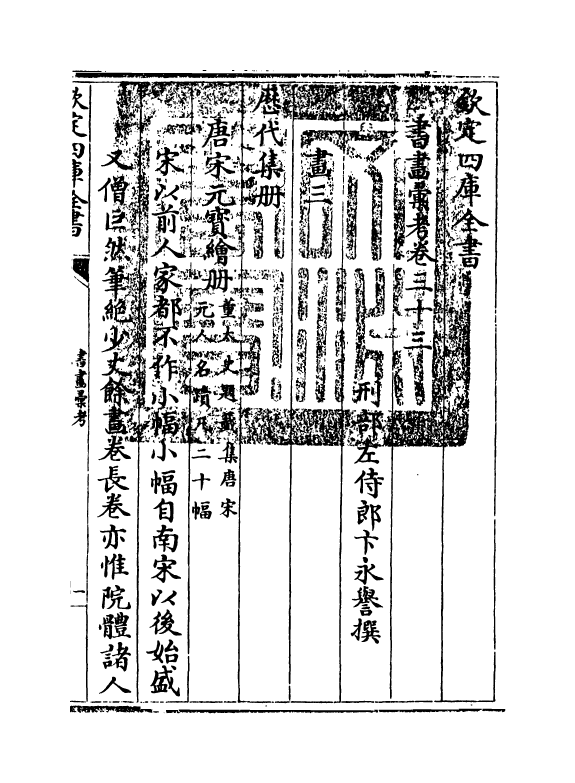 欽定四庫全書
書畫彙考卷三十三
刑部左侍郎卞永譽撰
畫三
歴代集册
唐宋元寶繪册
董太史題籖集唐宋
元人名蹟凡二十幅
宋以前人家都不作小幅小幅自南宋以後始盛
又僧巨然筆絶少丈餘畫卷長卷亦惟院體諸人
欽定四庫全書
書畫彙考
一